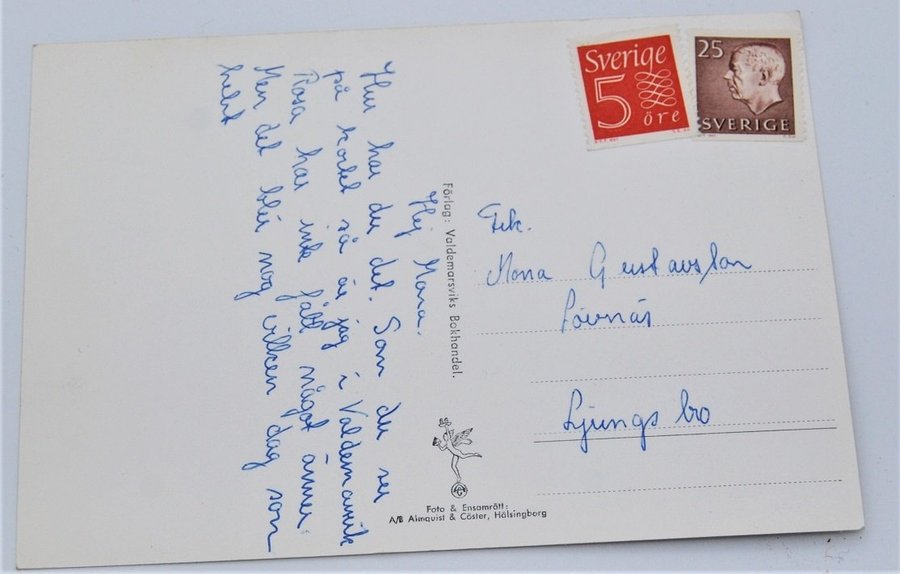 Hej Mona.
Hur har du det. Som du ser
på kortet så är jag i Valdemarsvik
Rosa har inte fått något ännu.
Men det blir nog vilken dag som
helst
Förlag: Valdemarsviks Bokhandel.
Foto & Ensamrätt:
A/B Almquist & Cöster, Hälsingborg
Sverige
5
öre
25
SVERIGE
Frk.
Mona Gustavsson
Lövnäs
Ljungsbro